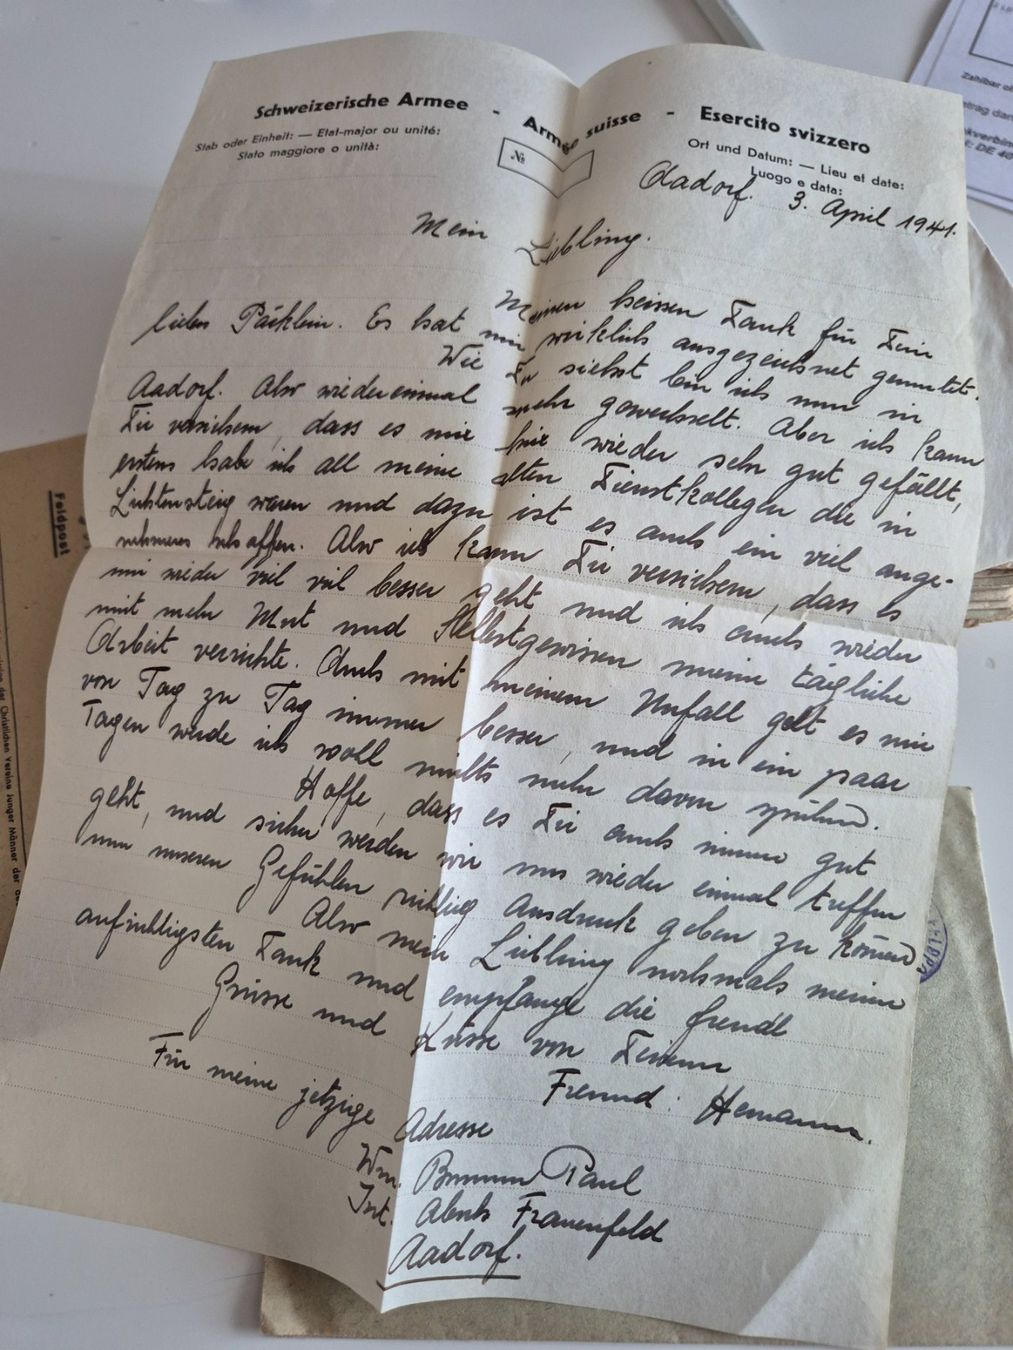 Schweizerische Armee - Armée suisse - Esercito svizzero
Stab oder Einheit: — Etat-major ou unité:
Stato maggiore o unità:
№
Ort und Datum: — Lieu et date:
Luogo e data:
Aadorf. 3. April 1941.
Mein Liebling.
Meinen heissen Dank für Dein
liebes Päcklein. Es hat mir wirklich ausgezeichnet gemundet.
Wie Du siehst bin ich nun in
Aadorf. Also wiedereinmal mehr gewechselt. Aber ich kann
Dir versichern, dass es mir hier wieder sehr gut gefällt,
erstens habe ich all meine alten Dienstkollegen die in
Lichtensteig waren und dazu ist es auch ein viel ange-
nehmeres schaffen. Also ich kann Dir versichern, dass es
mir wieder viel viel besser geht und ich auch wieder
mit mehr Mut und Selbstgewissen meine tägliche
Arbeit verrichte. Auch mit meinem Unfall geht es mir
von Tag zu Tag immer besser, und in ein paar
Tagen werde ich wohl nichts mehr davon spüren.
Hoffe, dass es Dir auch immer gut
geht, und sicher werden wir uns wieder einmal treffen
um unseren Gefühlen richtig Ausdruck geben zu können
Also mein Liebling nochmals meinen
aufrichtigsten Dank und empfange die freundl
Grüsse und Küsse von Deinem
Freund: Hermann.
Für meine jetzige Adresse
Paul
Frauenfeld
Aadorf.
Feldpost
der Christlichen Vereine Junger Männer der
Zahlbar
DE 40